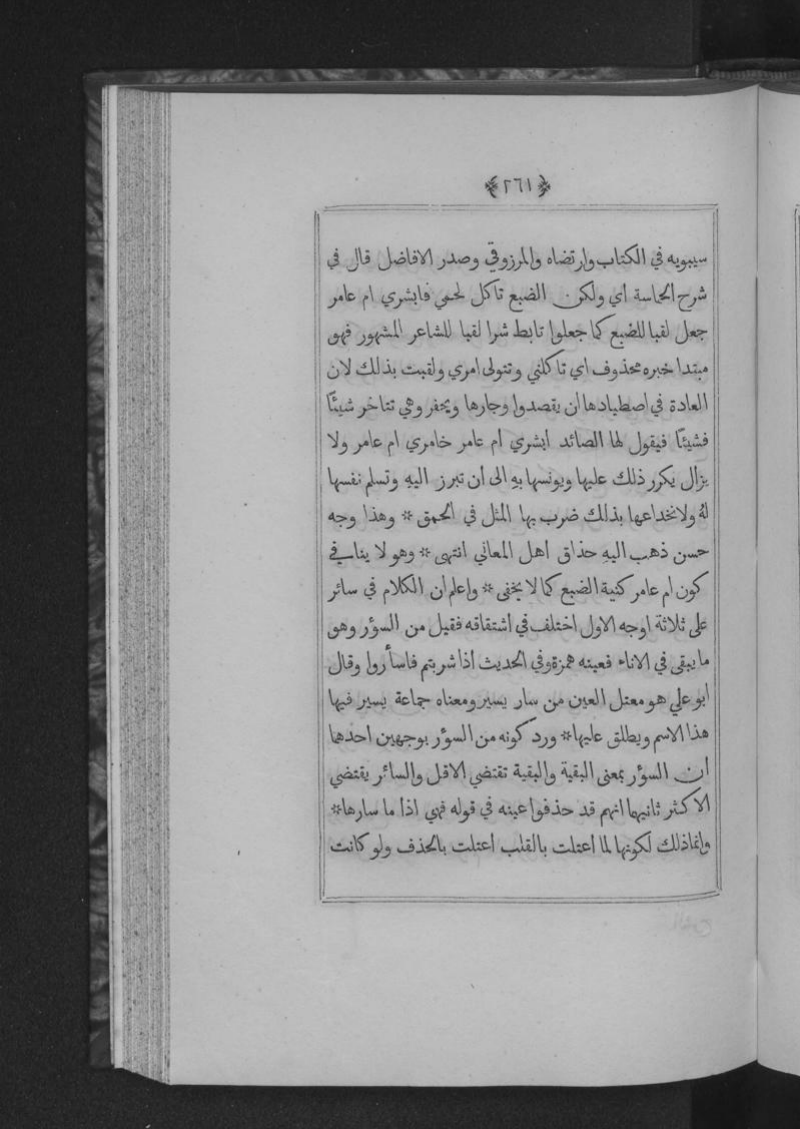 ﴿٢٦١﴾
سيبويه في الكتاب وارتضاه والمرزوقي وصدر الافاضل قال في
شرح الحماسة أي ولكن الضبع تاكل لحمي فابشري ام عامر
جعل لقبا للضبع كما جعلوا تابط شرا لقبا للشاعر المشهور فهو
مبتدا خبره محذوف اي تاكلني وتتولى امري ولقبت بذلك لان
العادة في اصطيادها ان يقصدوا وجارها ويحفر وهي تتاخر شيئًا
فشيئًا فيقول لها الصائد ابشري ام عامر خامري ام عامر ولا
يزال يكرر ذلك عليها ويونسها بهِ الى أن تبرز اليهِ وتسلم نفسها
لهُ ولانخداعها بذلك ضرب بها المثل في الحمق * وهذا وجه
حسن ذهب اليهِ حذاق اهل المعاني انتهى * وهو لا ينافي
كون ام عامر كنية الضبع كما لا يخفى * واعلم ان الكلام في سائر
على ثلاثة اوجه الاول اختلف في اشتقاقه فقيل من السؤر وهو
ما يبقى في الاناء فعينه همزة وفي الحديث اذا شربتم فاسأروا وقال
ابو علي هو معتل العين من سار يسير ومعناه جماعة يسير فيها
هذا الاسم ويطلق عليها * ورد كونه من السؤر بوجهين احدهما
أن السؤر بمعنى البقية والبقية تقتضي الاقل والسائر يقتضي
الاكثر ثانيهما انهم قد حذفوا عينه في قوله فهي اذا ما سارها *
وانما ذلك لكونها لما اعتلت بالقلب اعتلت بالحذف ولو كانت